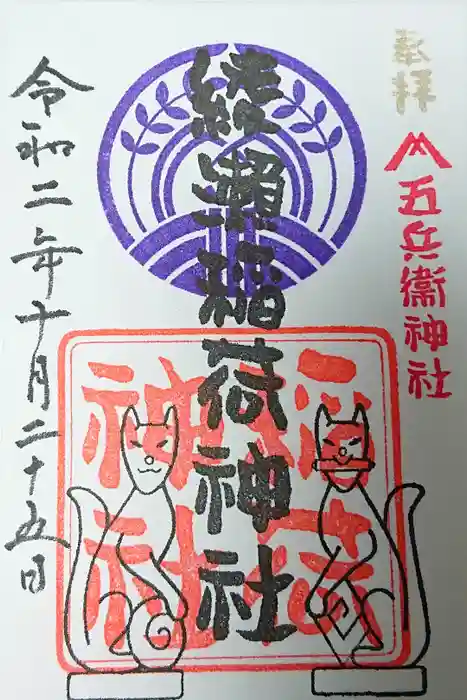 奉拝
五兵衛神社
綾瀬稲荷神社
令和二年十月二十五日
稲荷
神社